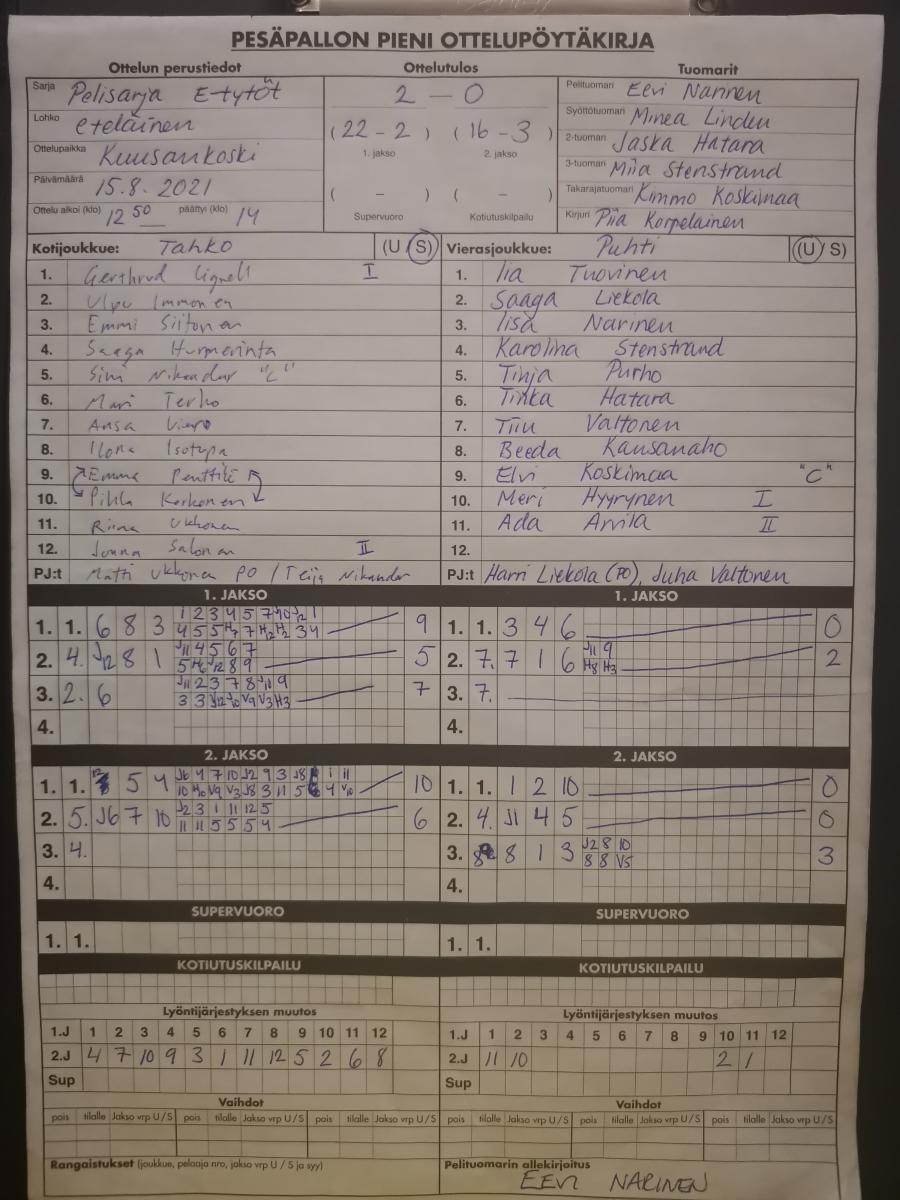 PESÄPALLON PIENI OTTELUPÖYTÄKIRJA
Ottelun perustiedot
Sarja Pelisarja E-tytöt
Lohko eteläinen
Ottelupaikka Kuusankoski
Päivämäärä 15.8.2021
Ottelu alkoi (klo) 12 50 päättyi (klo) 14
Ottelutulos
2 - 0
(22 - 2) (16 - 3)
1. jakso 2. jakso
( - ) ( - )
Supervuoro Kotiutuskilpailu
Tuomarit
Pelituomari Eevi Narinen
Syöttötuomari Minea Linden
2-tuomari Jaska Hatara
3-tuomari Miia Stenstrand
Takarajatuomari Kimmo Koskimaa
Kirjuri Piia Korpelainen
Kotijoukkue: Tahko (U / S)
1. Gerthrud Lignell I
2. Ulpu Immonen
3. Emmi Siitonen
4. Saaga Hurmerinta
5. Sini Nikander "C"
6. Mari Terho
7. Ansa
8. Ilona Isotupa
9. Emma Penttilä
10. Pihla Korhonen
11. Riina Ukkonen
12. Jonna Salonen II
PJ:t Matti Ukkonen PO / Teija Nikander
Vierasjoukkue: Puhti (U / S)
1. Iia Tuovinen
2. Saaga Liekola
3. Iisa Narinen
4. Karolina Stenstrand
5. Tinja Purho
6. Tinka Hatara
7. Tiiu Valtonen
8. Beeda Kansanaho
9. Elvi Koskimaa "C"
10. Meri Hyyrynen I
11. Ada Anvila II
12.
PJ:t Harri Liekola (PO), Juha Valtonen
1. JAKSO
1. 1. 6 8 3 9
2. 4. J12 8 1 5
J11 4 5 6 7
5 H6 J12 8 9
3. 2. 6 7
J11 2 3 7 8 J11 9
3 3 J12 J10 V9 V3 H3
4.
1. JAKSO
1. 1. 3 4 6 0
2. 7. 7 1 6 2
J11 9
H8 H3
3. 7.
4.
2. JAKSO
1. 1. 5 4 10
2. 5. J6 7 10 6
J2 3 1 11 12 5
11 11 5 5 5 4
3. 4.
4.
2. JAKSO
1. 1. 1 2 10 0
2. 4. J1 4 5 0
3. 8 1 3 3
J2 8 10
8 8 V5
4.
SUPERVUORO
1. 1.
SUPERVUORO
1. 1.
KOTIUTUSKILPAILU
KOTIUTUSKILPAILU
Lyöntijärjestyksen muutos
1.J 1 2 3 4 5 6 7 8 9 10 11 12
2.J 4 7 10 9 3 1 11 12 5 2 6 8
Sup
Lyöntijärjestyksen muutos
1.J 1 2 3 4 5 6 7 8 9 10 11 12
2.J 11 10 2 1
Sup
Vaihdot
pois tilalle Jakso vrp U / S pois tilalle Jakso vrp U / S pois tilalle Jakso vrp U / S
Vaihdot
pois tilalle Jakso vrp U / S pois tilalle Jakso vrp U / S pois tilalle Jakso vrp U / S
Rangaistukset (joukkue, pelaaja nro, jakso vrp U / S ja syy)
Pelituomarin allekirjoitus
EEVI NARINEN